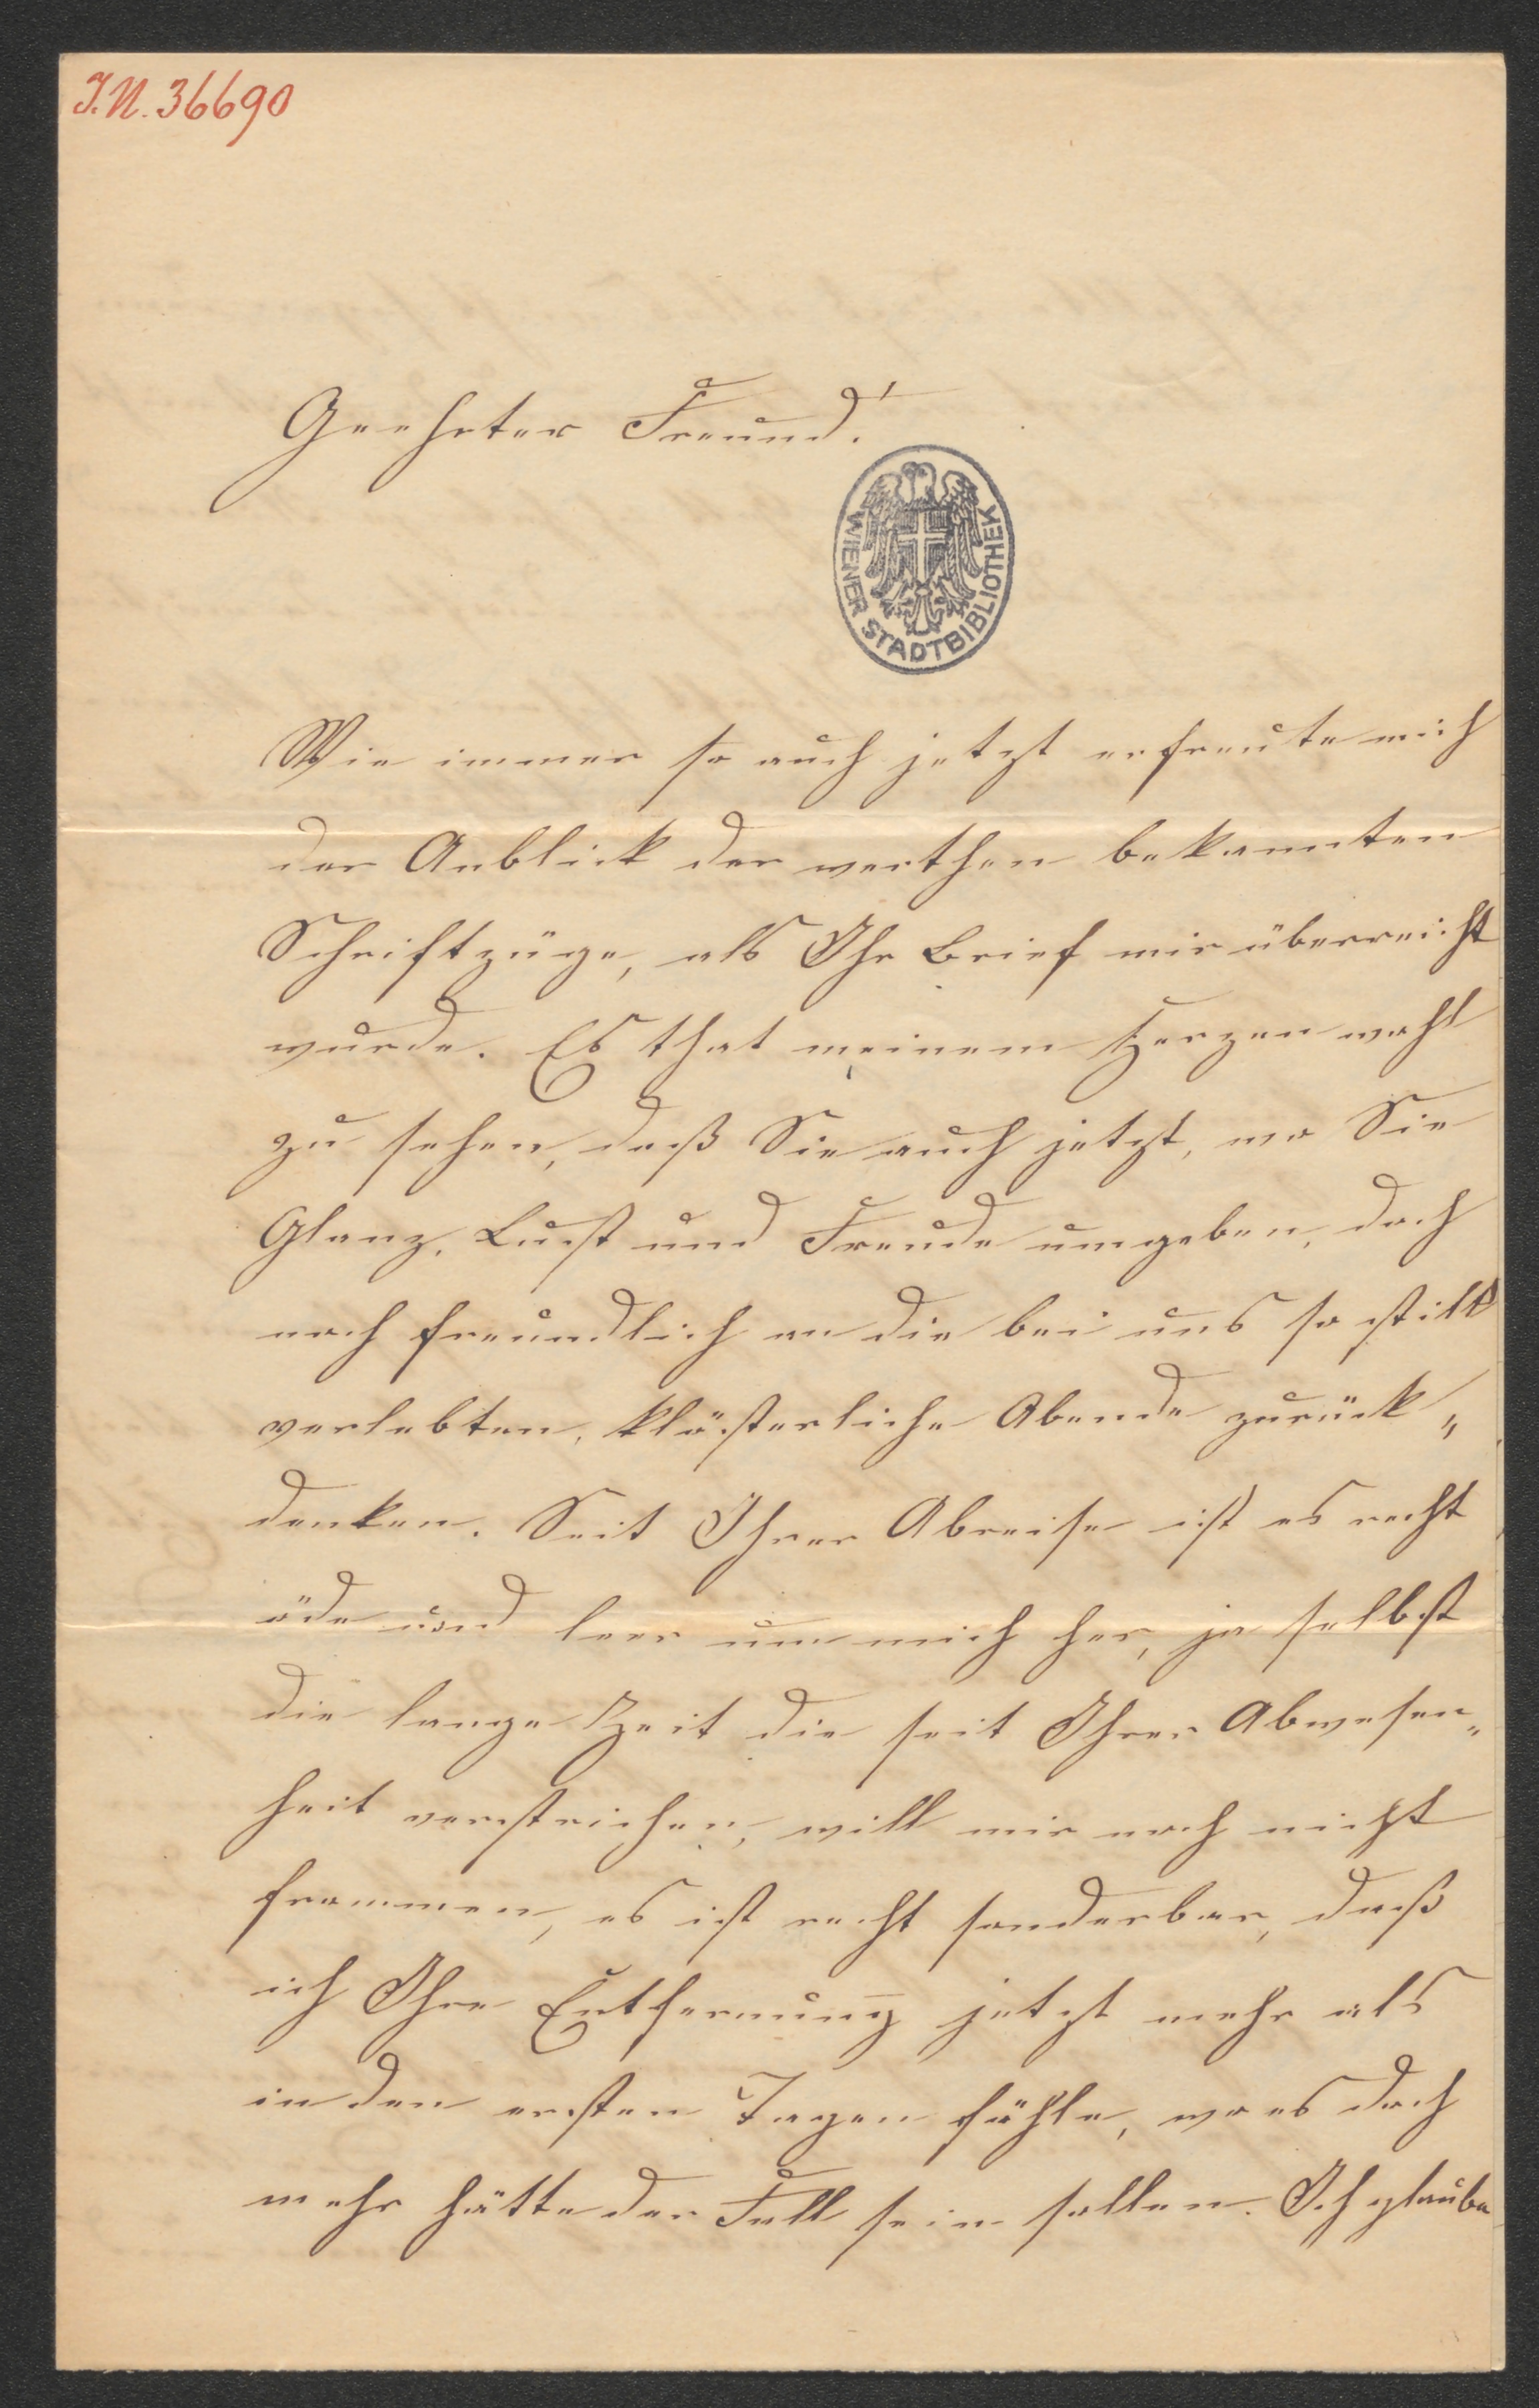 I.N. 36690
Geehrter Freund!
WIENER STADTBIBLIOTHEK
Wie immer so auch jetzt erfreute mich
der Anblick der werthen bekannten
Schriftzüge, als Ihr Brief mir überreicht
wurde. Es that meinem Herzen wohl
zu sehen, daß Sie auch jetzt, wo Sie
Glanz, Lust und Freude umgeben, doch
noch freundlich an die bei uns so still
verlebten, klösterliche Abende zurück„
denken. Seit Ihrer Abreise ist es recht
öde und leer um mich her, ja selbst
die lange Zeit die seit Ihrer Abwesen„
heit verstrichen, will mir noch nicht
frommen, es ist recht sonderbar, daß
ich Ihre Entfernung jetzt mehr als
in den ersten Tagen fühle, wo es doch
mehr hätte der Fall sein sollen. Ich glaube